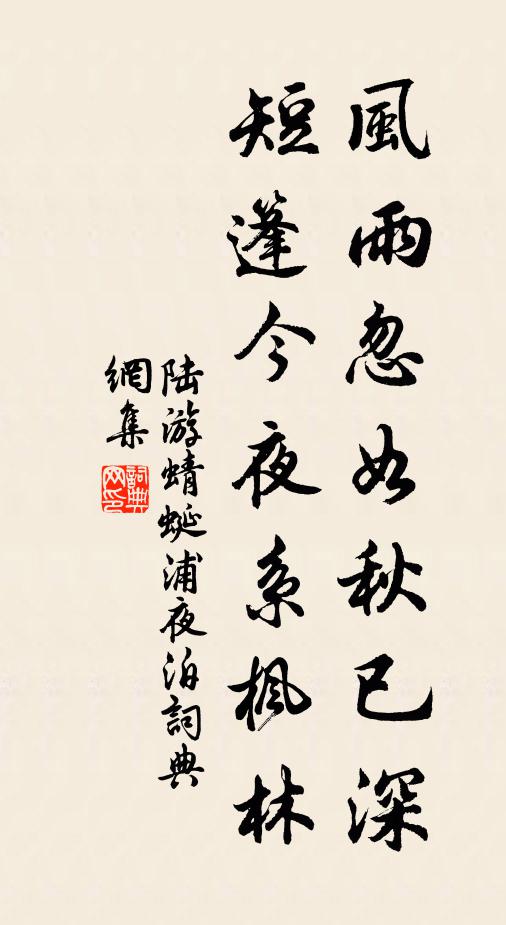 風雨忽如秋已深
短蓬今夜系楓林
陆游蜻蜓浦夜泊詞典
網集
詞典
网印